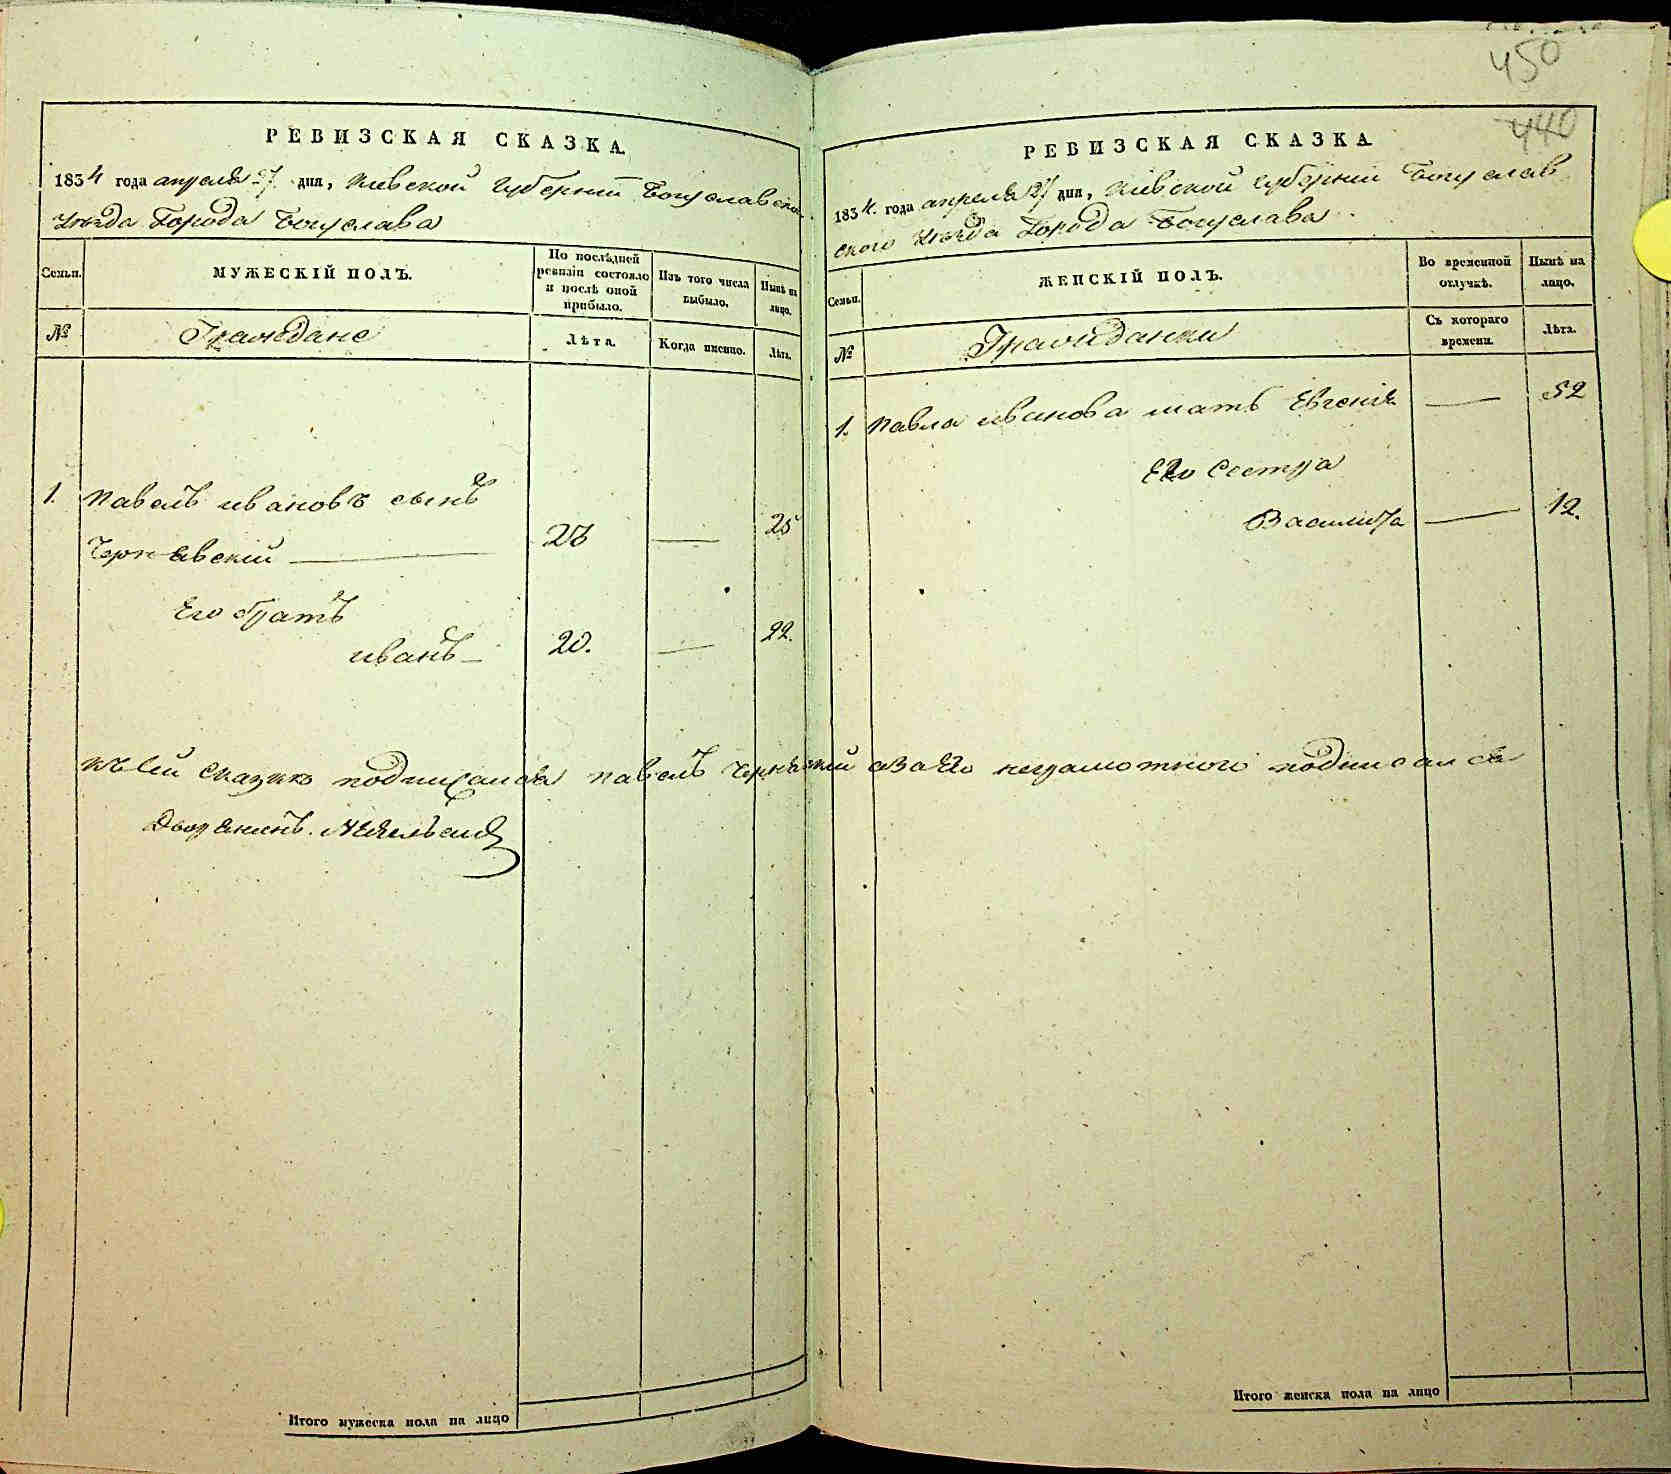 450
440
РЕВИЗСКАЯ СКАЗКА.
1834 года апреля 27 дня, Киевской Губернии Богуславского
уезда Города Богуслава
Семьи.
МУЖЕСКІЙ ПОЛЪ.
По послѣдней
ревизіи состояло
и послѣ оной
прибыло.
Изъ того числа
выбыло.
Нынѣ на
лицо.
№
Граждане
Лѣта.
Когда именно.
Лѣта.
1. Павелъ ивановъ сынъ
Чернявскій 25
Его братъ
иванъ 20. 22.
къ сей сказкѣ подписался павелъ Чернявский а за его неграмотного подписался
Дворянинъ.
Итого мужеска пола на лицо
РЕВИЗСКАЯ СКАЗКА
1834. года апреля 27 дня, Киевской Губернии Богуслав
ского уезда Города Богуслава
Семьи.
ЖЕНСКІЙ ПОЛЪ.
Во временной
отлучкѣ.
Нынѣ на
лицо.
№
Гражданки
Съ котораго
времени.
Лѣта.
1. Павла иванова мать Евгения 52
Его Сестра
Василиса 12.
Итого женска пола на лицо